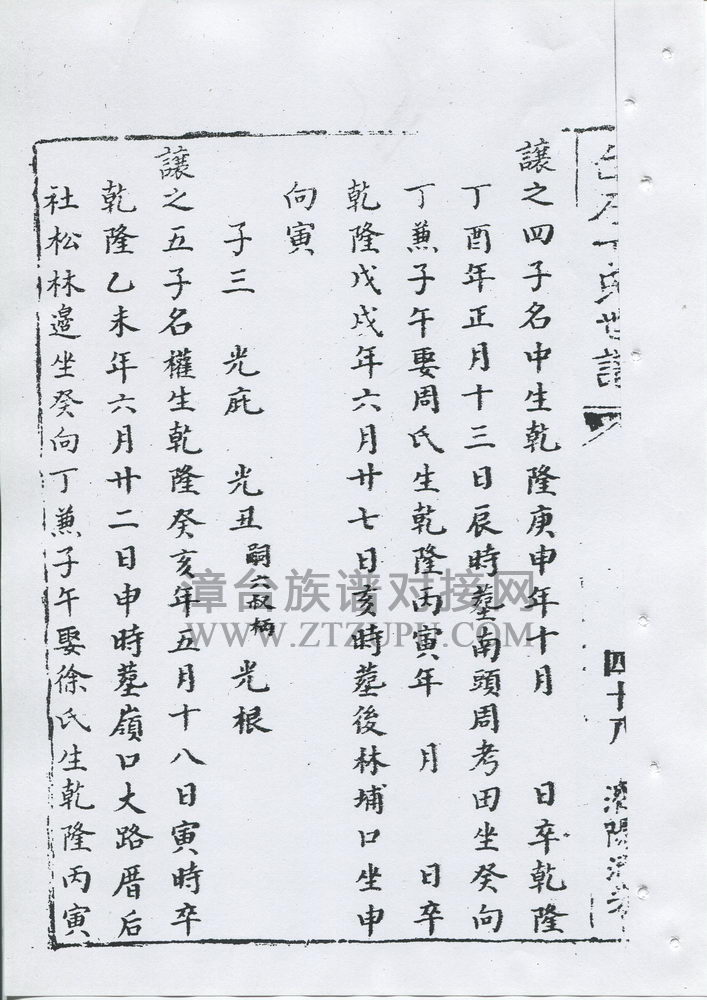 譲之四子名中生乾隆庚申年十月 日卒乾隆
丁酉年正月十三日辰時塟南頭周考田坐癸向
丁兼子午娶周氏生乾隆丙寅年 月 日卒
乾隆戊戌年六月廿七日亥時塟後林埔口坐申
向寅
子三 光庇 光丑嗣六叔柄 光根
譲之五子名權生乾隆癸亥年五月十八日寅時卒
乾隆乙未年六月廿二日申時塟嶺口大路厝后
社松林邉坐癸向丁兼子午娶徐氏生乾隆丙寅
四十八
漳台族谱对接网
WWW.ZTZUPU.COM